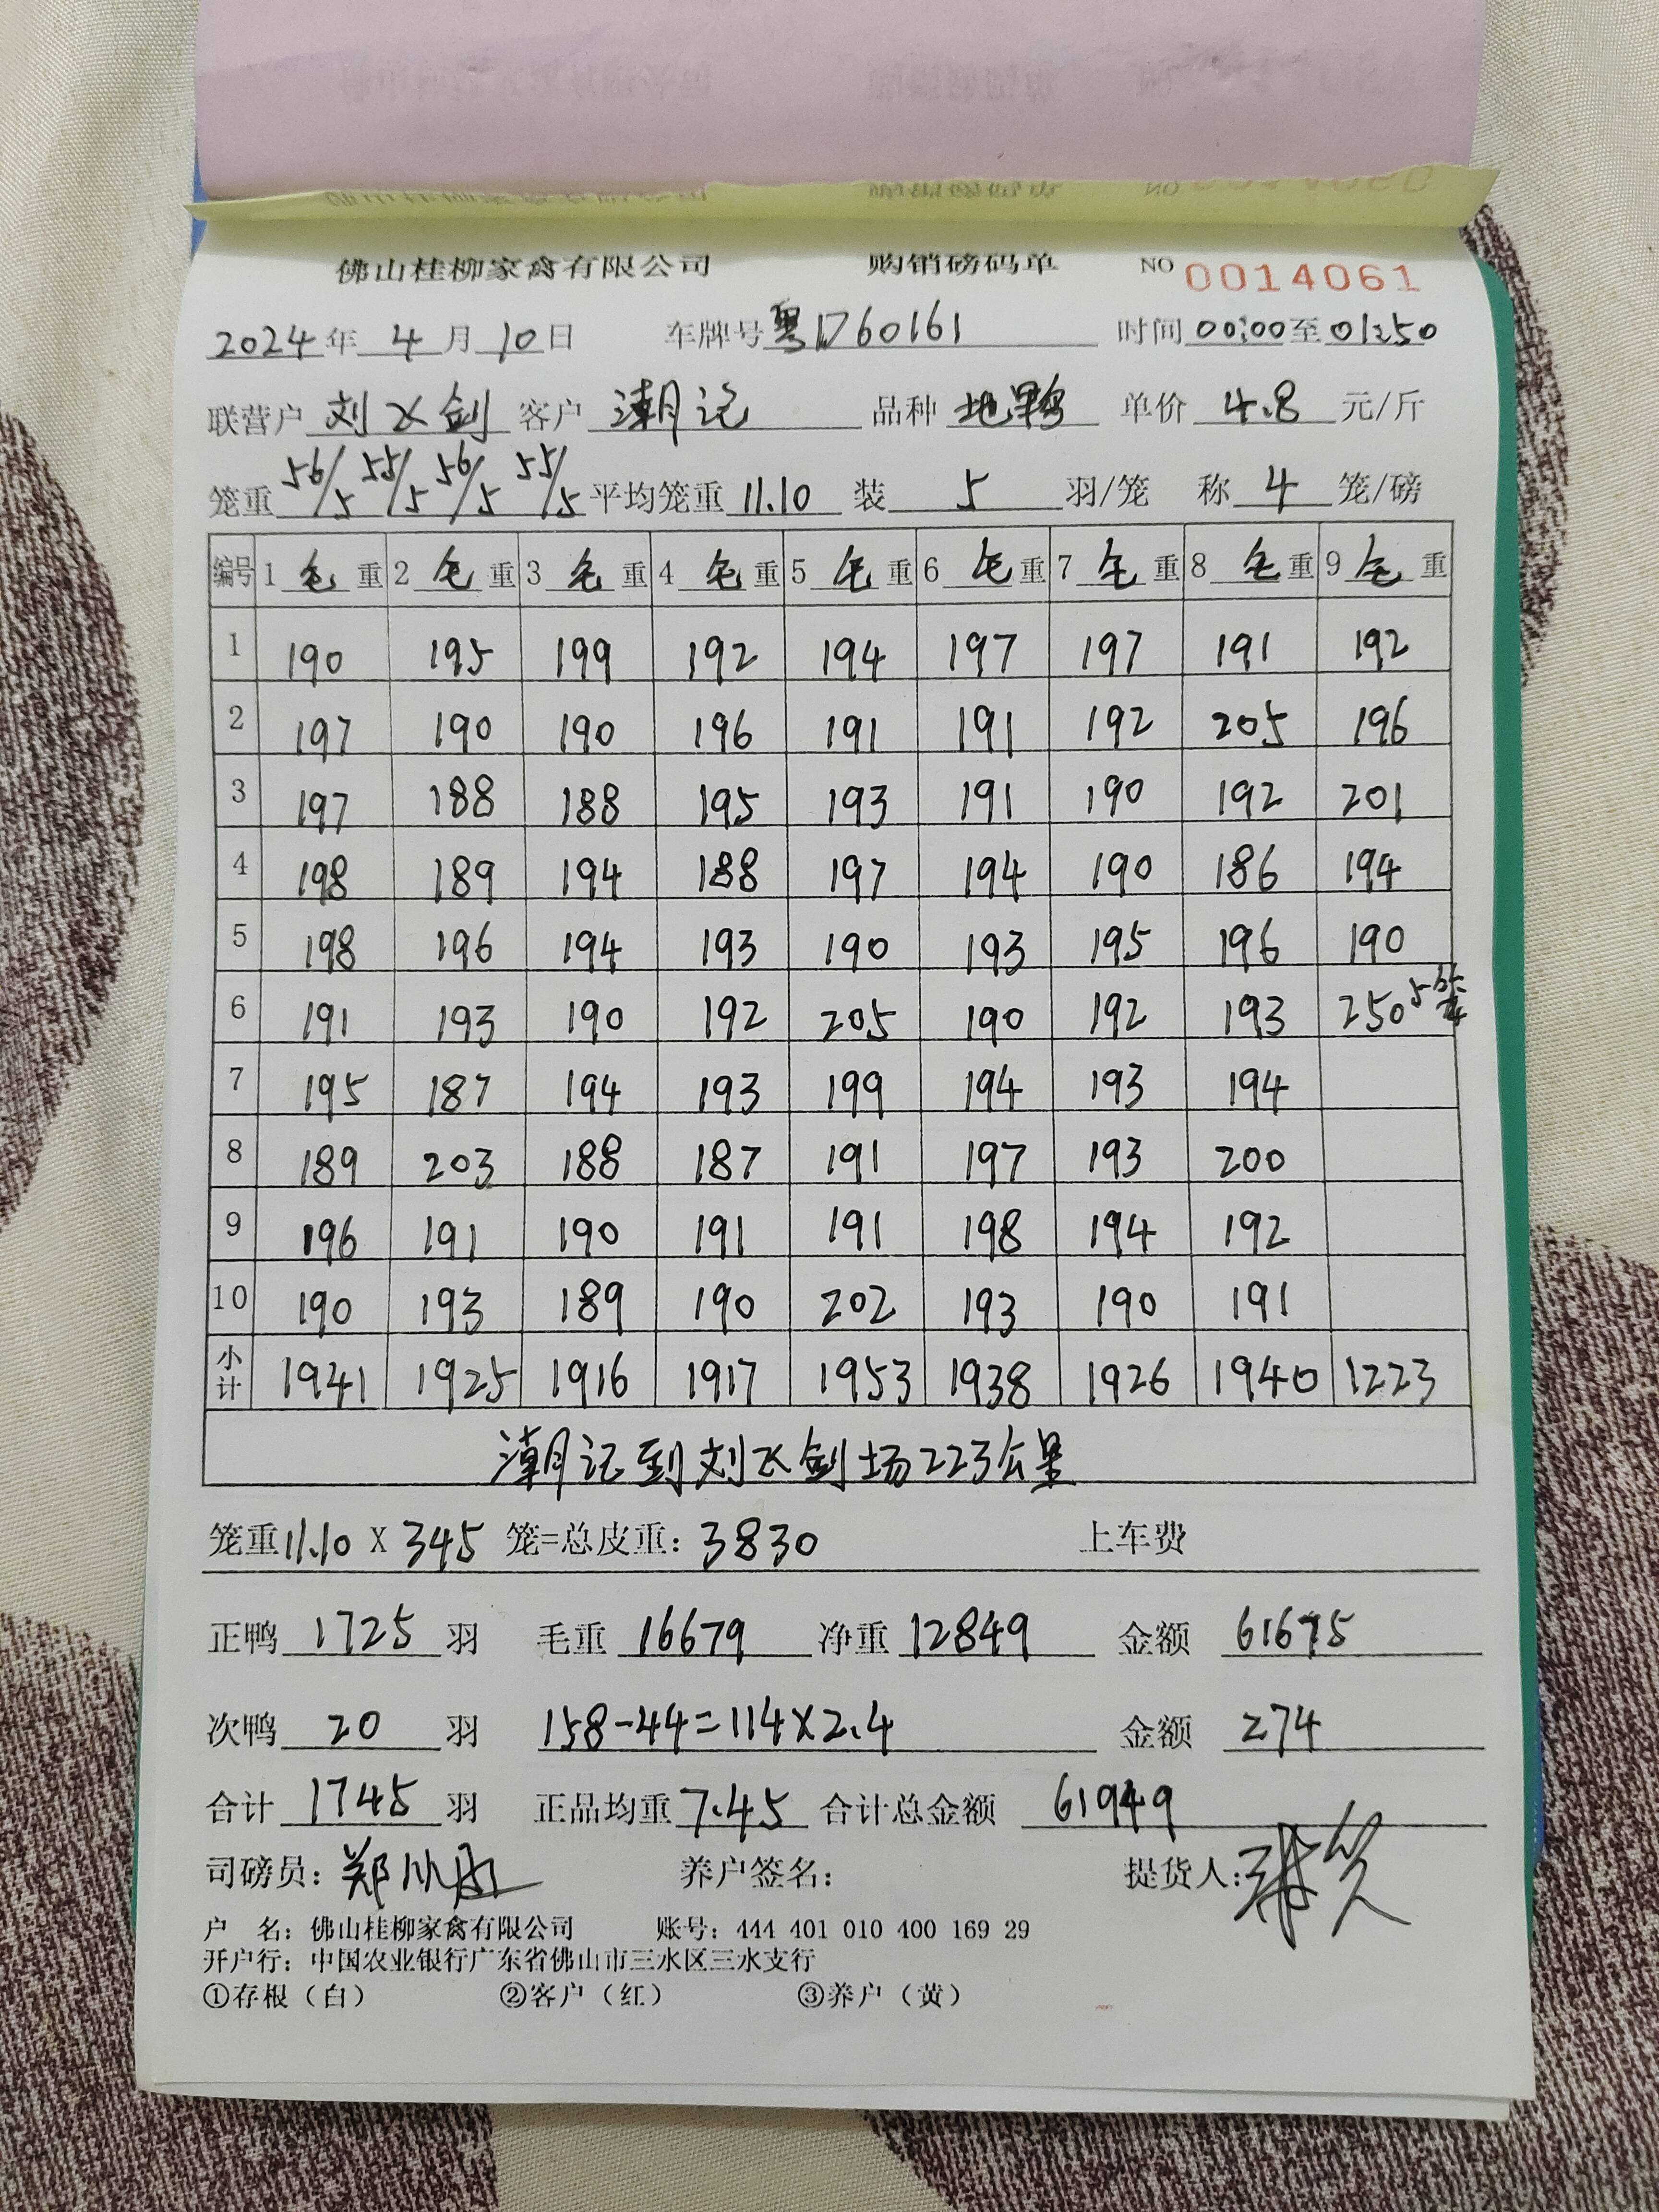 佛山桂柳家禽有限公司 购销磅码单 NO 0014061
2024年4月10日 车牌号粤1760161 时间00:00至01:50
联营户 刘飞剑 客户 潮记 品种 地鸭 单价 4.8 元/斤
笼重 56/5 55/5 56/5 55/5 平均笼重 11.10 装 5 羽/笼 称 4 笼/磅
编号 1 毛 重 2 毛 重 3 毛 重 4 毛 重 5 毛 重 6 毛 重 7 毛 重 8 毛 重 9 毛 重
1 190 195 199 192 194 197 197 191 192
2 197 190 190 196 191 191 192 205 196
3 197 188 188 195 193 191 190 192 201
4 198 189 194 188 197 194 190 186 194
5 198 196 194 193 190 193 195 196 190
6 191 193 190 192 205 190 192 193 250 5笼
7 195 187 194 193 199 194 193 194
8 189 203 188 187 191 197 193 200
9 196 191 190 191 191 198 194 192
10 190 193 189 190 202 193 190 191
小计 1941 1925 1916 1917 1953 1938 1926 1940 1223
潮记到刘飞剑场223公里
笼重11.10 X 345 笼=总皮重：3830 上车费
正鸭 1725 羽 毛重 16679 净重 12849 金额 61675
次鸭 20 羽 158-44=114×2.4 金额 274
合计 1745 羽 正品均重 7.45 合计总金额 61949
司磅员： 养户签名： 提货人：
户 名：佛山桂柳家禽有限公司 账号：444 401 010 400 169 29
开户行：中国农业银行广东省佛山市三水区三水支行
①存根（白） ②客户（红） ③养户（黄）